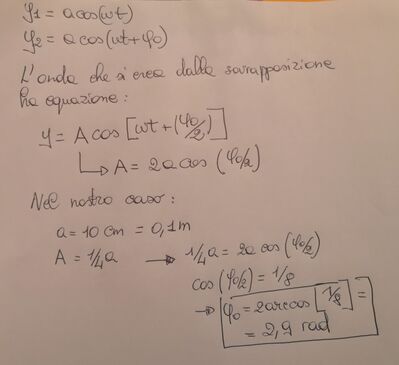 y₁ = a cos(ωt)
y₂ = a cos(ωt+φ₀)
L'onda che si crea dalla sovrapposizione
ha equazione:
y = A cos [ωt + (φ₀/2)]
↳ A = 2a cos (φ₀/2)
Nel nostro caso:
a = 10 cm = 0,1 m
A = 1/4 a → 1/4 a = 2a cos (φ₀/2)
cos (φ₀/2) = 1/8
→ φ₀ = 2 arccos [1/8] =
= 2,9 rad